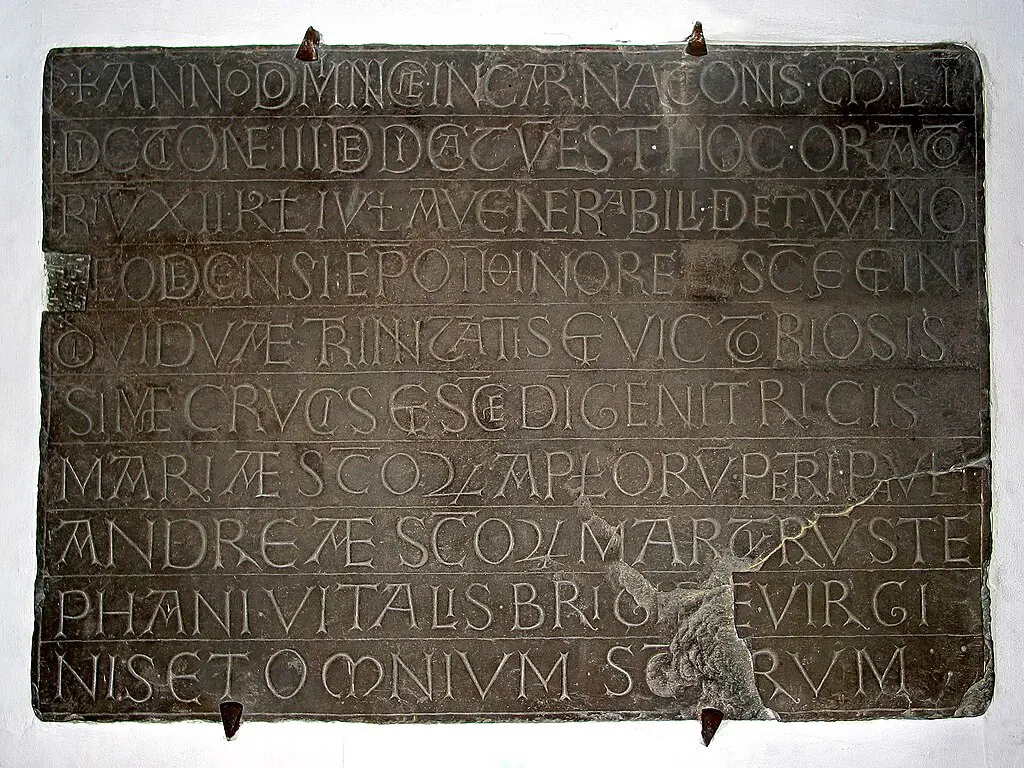 + ANNO DMNICE INCARNATONIS MLI
DCTIONE III DEDICATV EST HOC ORATO
RIV XII KL IVL A VENERABILI DETWINO
LEODENSI EPO IH HINORE SCE ET IN
DIVIDVAE TRINITATIS ET VICTORIOSIS
SIME CRVCIS ET SCE DI GENITRICIS
MARIAE SCOR APLORV PETRI PAVLI
ANDREAE SCOR MARTRV STE
PHANI VITALIS BRIG E VIRGI
NIS ET OMNIVM S RVM